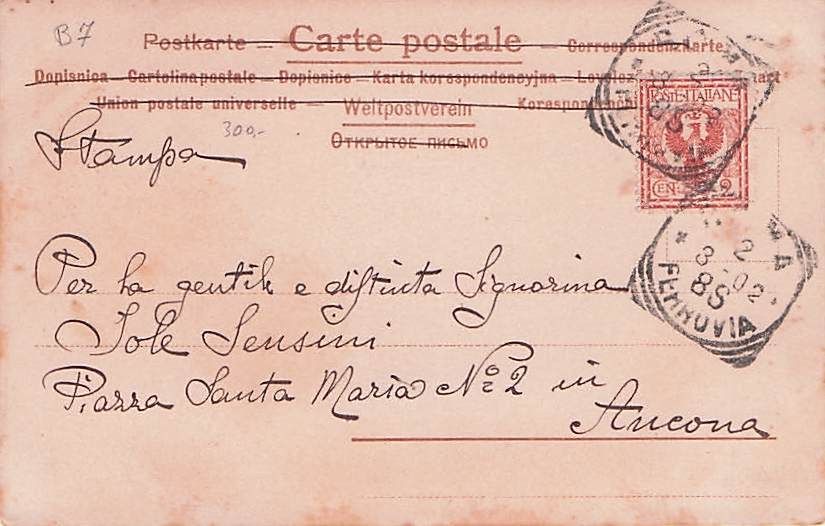 B7
Postkarte — Carte postale — Correspondenz-Karte
Dopisnica — Cartolina postale — Dopisnice — Karta korespondencyjna — Levelez
Union postale universelle — Weltpostverein
ОТКРЫТОЕ ПИСЬМО
300,-
Stampa
POSTE ITALIANE
CEN 2
2
8 02
8S
FERROVIA
Per la gentile e distinta Signorina
Iole Sensini
Piazza Santa Maria No 2 in
Ancona